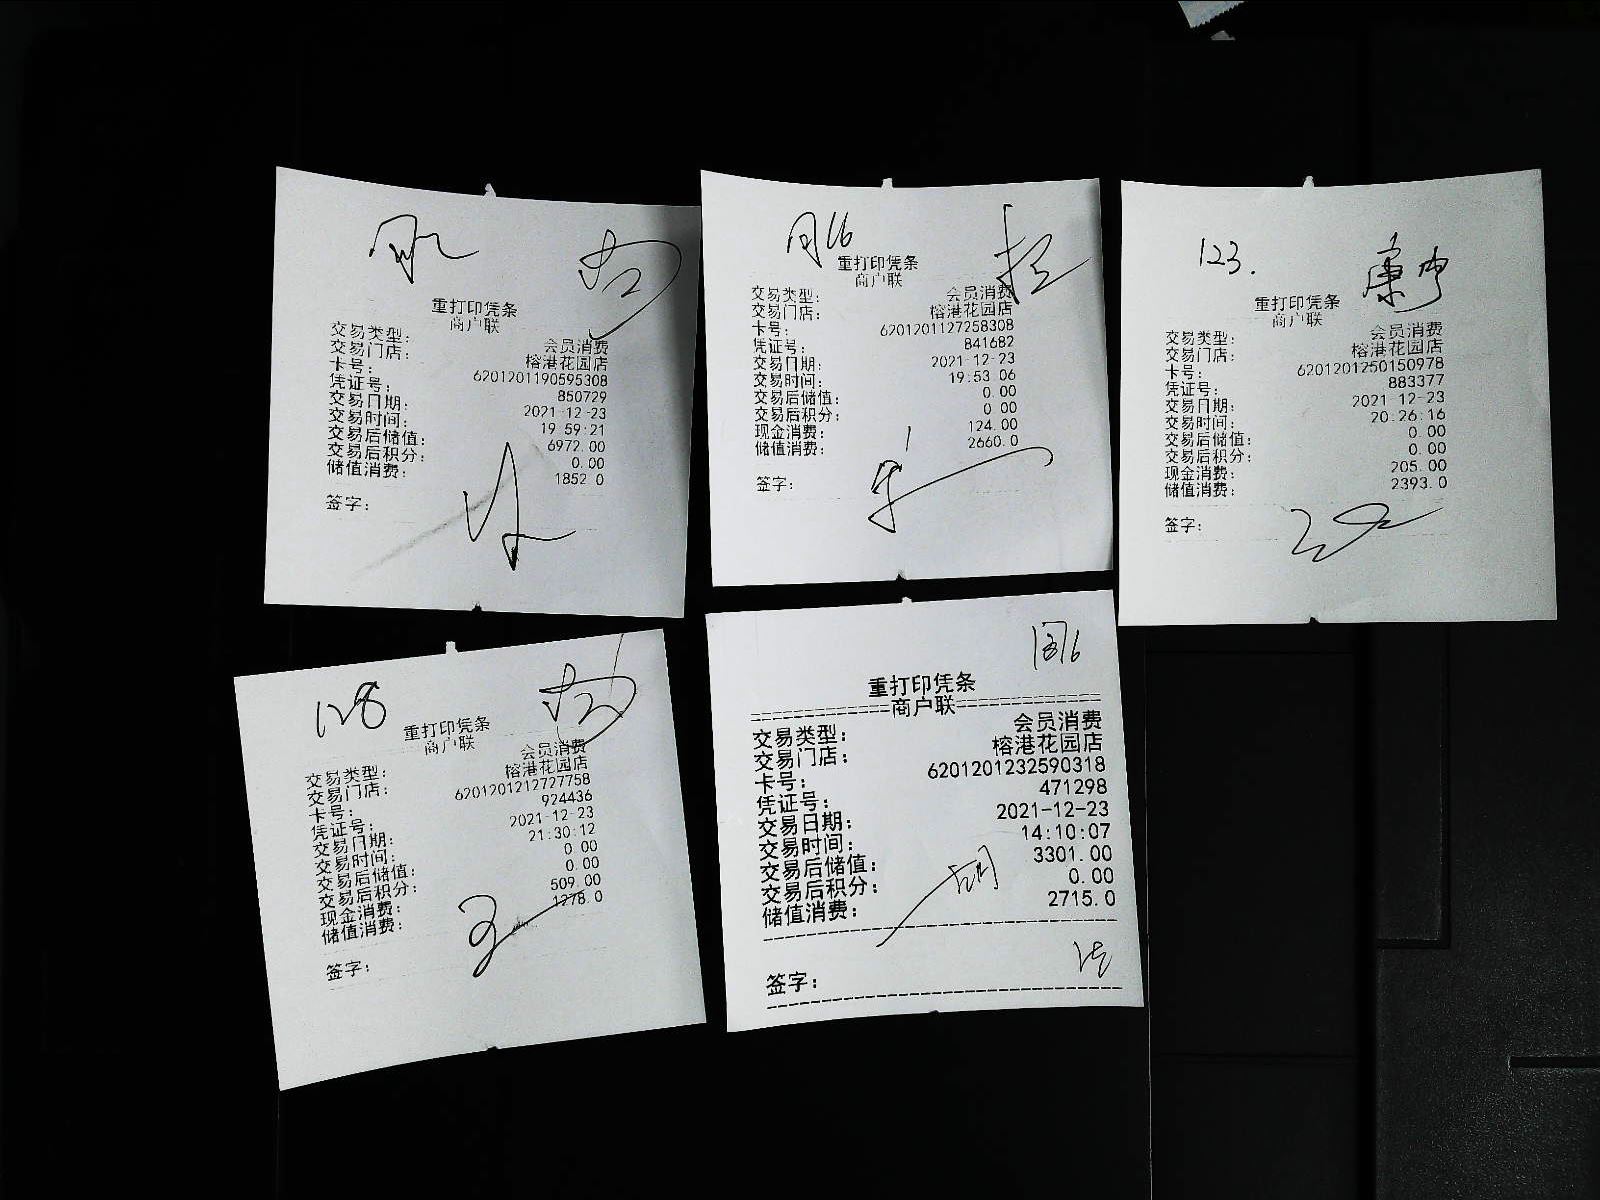 重打印凭条
商户联
交易类型： 会员消费
交易门店： 榕港花园店
卡号： 6201201190595308
凭证号： 850729
交易日期： 2021-12-23
交易时间： 19:59:21
交易后储值： 6972.00
交易后积分： 0.00
储值消费： 1852.0
签字：
重打印凭条
商户联
交易类型： 会员消费
交易门店： 榕港花园店
卡号： 6201201127258308
凭证号： 841682
交易日期： 2021-12-23
交易时间： 19:53:06
交易后储值： 0.00
交易后积分： 0.00
现金消费： 124.00
储值消费： 2660.0
签字：
123.
重打印凭条
商户联
交易类型： 会员消费
交易门店： 榕港花园店
卡号： 6201201250150978
凭证号： 883377
交易日期： 2021-12-23
交易时间： 20:26:16
交易后储值： 0.00
交易后积分： 0.00
现金消费： 205.00
储值消费： 2393.0
签字：
128
重打印凭条
商户联
交易类型： 会员消费
交易门店： 榕港花园店
卡号： 6201201212727758
凭证号： 924436
交易日期： 2021-12-23
交易时间： 21:30:12
交易后储值： 0.00
交易后积分： 0.00
现金消费： 509.00
储值消费： 1278.0
签字：
重打印凭条
商户联
交易类型： 会员消费
交易门店： 榕港花园店
卡号： 6201201232590318
凭证号： 471298
交易日期： 2021-12-23
交易时间： 14:10:07
交易后储值： 3301.00
交易后积分： 0.00
储值消费： 2715.0
签字：